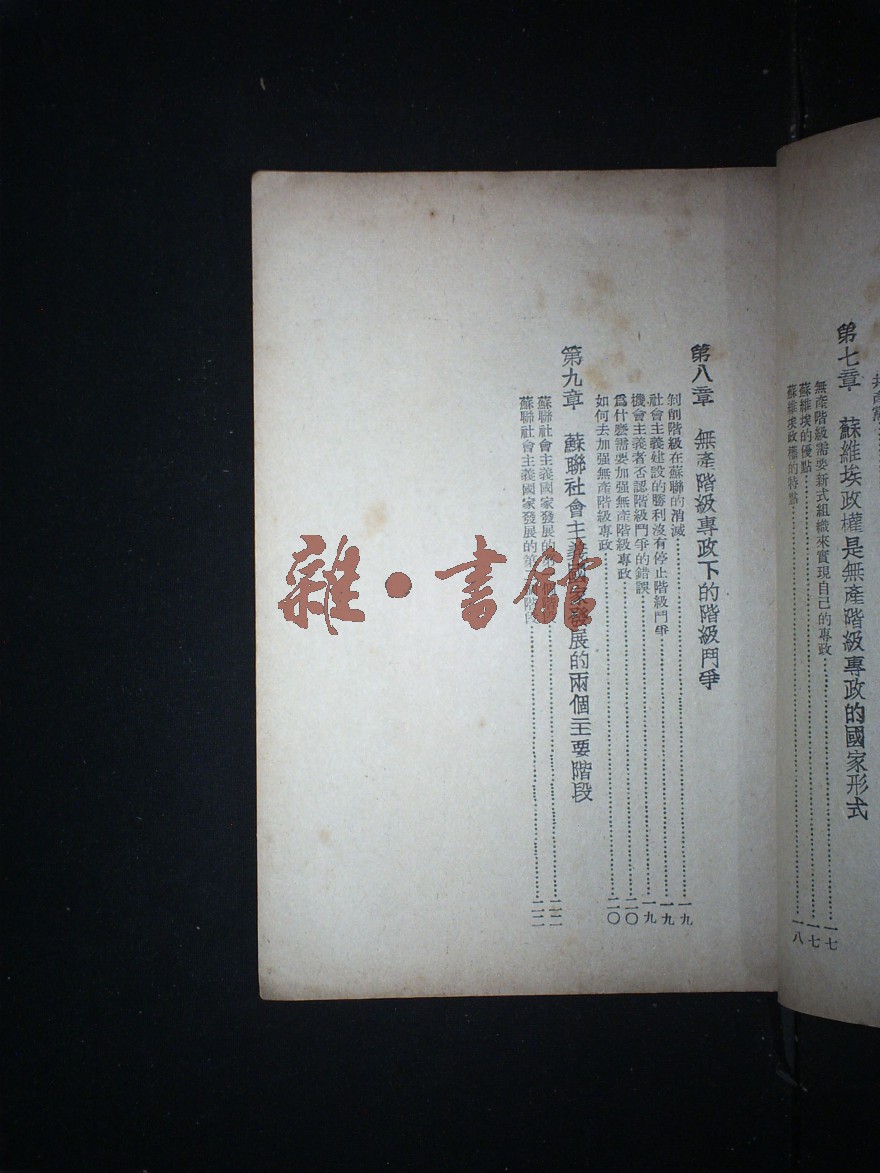 共產黨
第七章 蘇維埃政權是無產階級專政的國家形式
無產階級需要新式組織來實現自己的專政……一七
蘇維埃的優點……一七
蘇維埃政權的特點……一八
第八章 無產階級專政下的階級鬥爭
剝削階級在蘇聯的消滅……一九
社會主義建設的勝利沒有停止階級鬥爭……一九
機會主義者否認階級鬥爭的錯誤……一九
爲什麽需要加强無產階級專政……二〇
如何去加强無產階級專政……二〇
第九章 蘇聯社會主義國家發展的兩個主要階段
蘇聯社會主義國家發展的第階段……二二
蘇聯社會主義國家發展的第階段……二二
雜·書館